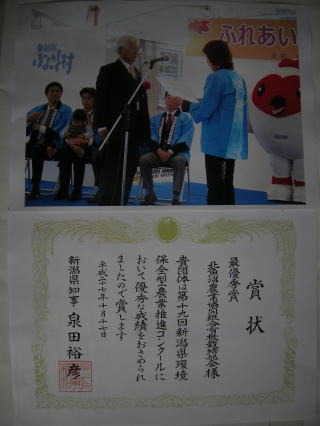 新潟
ふるさと村
ふれあい
賞状
最優秀賞
北魚沼農業協同組合有機栽培部会様
貴団体は第十九回新潟県環境
保全型農業推進コンクールに
おいて優秀な成績をおさめられ
ましたので賞します
平成二十七年十月十七日
新潟県知事 泉田裕彦